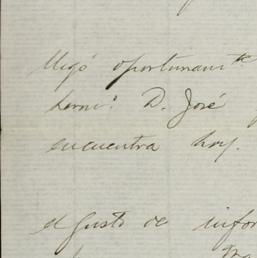 llegó oportunamte
D. José
encuentra hoy.
el gusto de infor